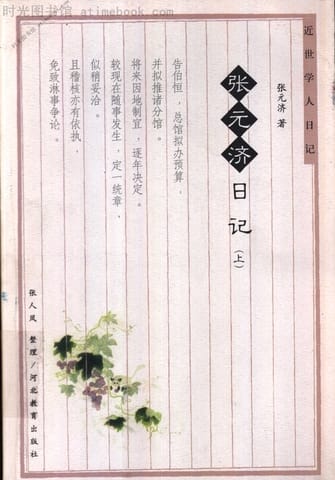 时光图书馆 atimebook.com
近世学人日记
张元济 著
张元济日记
（上）
告伯恒，总馆拟办预算，
并拟推诸分馆。
将来因地制宜，逐年决定。
较现在随事发生，定一统章，
似稍妥洽。
且稽核亦有依执，
免致淋事争论。
张人凤 整理／河北教育出版社